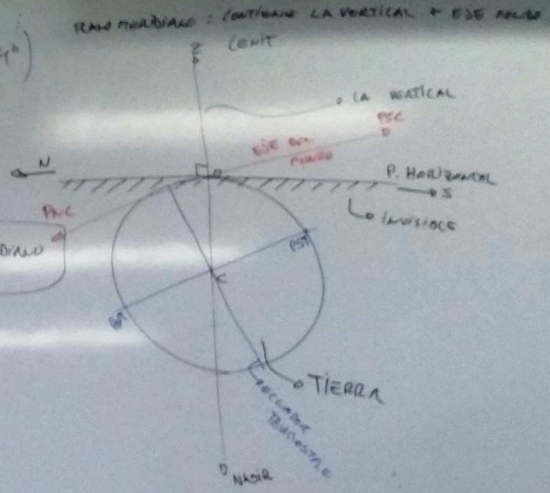 PLANO MERIDIANO : CONTIENE LA VERTICAL + EJE MUNDO
4h)
Z
CENIT
LA VERTICAL
PSC
EJE DEL
MUNDO
N
P. HORIZONTAL
S
INVISIBLE
PNC
DIANO
PST
K
TIERRA
ECUADOR
TERRESTRE
NADIR